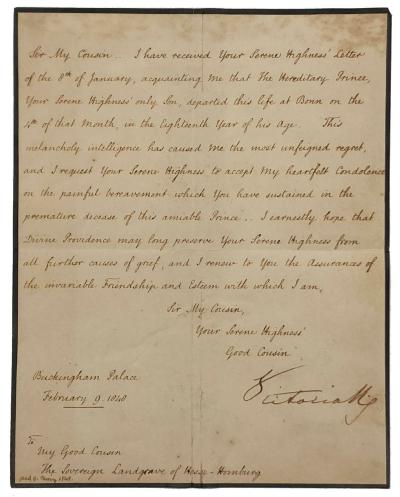 Sir My Cousin.. I have received Your Serene Highness' Letter
of the 8th of January, acquainting Me that The Hereditary Prince,
Your Serene Highness' only Son, departed this life at Bonn on the
4th of that Month, in the Eighteenth Year of his Age. This
melancholy intelligence has caused Me the most unfeigned regret,
and I request Your Serene Highness to accept My heartfelt Condolence
on the painful bereavement which You have sustained in the
premature decease of this amiable Prince.. I earnestly hope that
Divine Providence may long preserve Your Serene Highness from
all further causes of grief, and I renew to You the Assurances of
the invariable Friendship and Esteem with which I am,
Sir My Cousin,
Your Serene Highness'
Good Cousin
Buckingham Palace
February 9. 1848
Victoria R
To
My Good Cousin
The Sovereign Landgrave of Hesse-Homburg